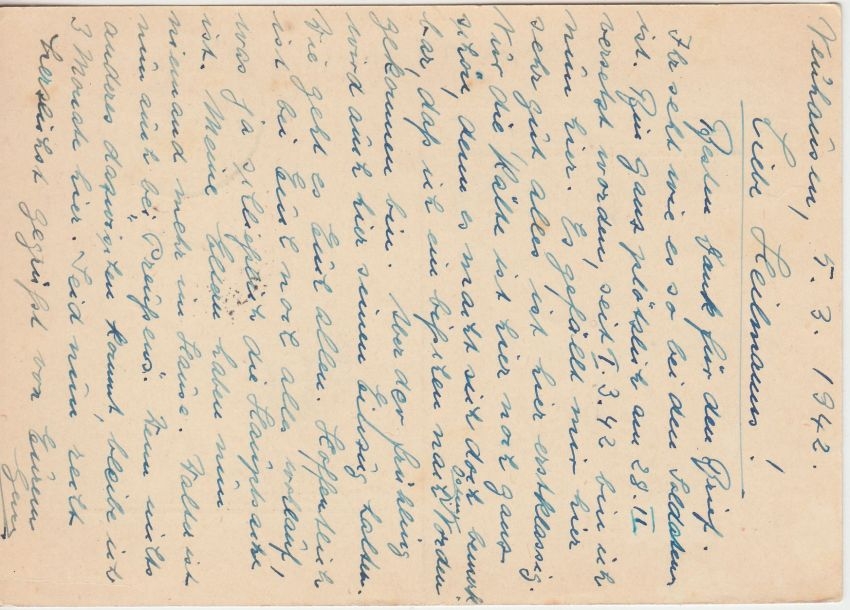 Neuhausen, 5. 3. 1942.
Liebe Heilmanns!
Besten Dank für den Brief.
Ihr seht wie es so bei den Soldaten
ist. Bin ganz plötzlich am 28. II
versetzt worden, seit 1. 3. 42 bin ich
nun hier. Es gefällt mir hier
sehr gut alles ist hier erstklassig.
Nur die Kälte ist hier noch ganz
schön, denn es macht sich doch bemerk
bar, daß ich ein bißchen nach Osten Norden
gekommen bin. Aber der Frühling
wird auch hier seinen Einzug halten.
Wie geht es Euch allen. Hoffentlich
ist bei Euch noch alles wohlauf,
was ja schließlich die Hauptsache
ist. Meine Eltern haben nun
niemand mehr im Hause. Vater ist
nun auch bei Preußens. Wenn nichts
anders dazwischen kommt, bleibe ich
3 Monate hier. Seid nun recht
herzlichst gegrüßt von Eurem